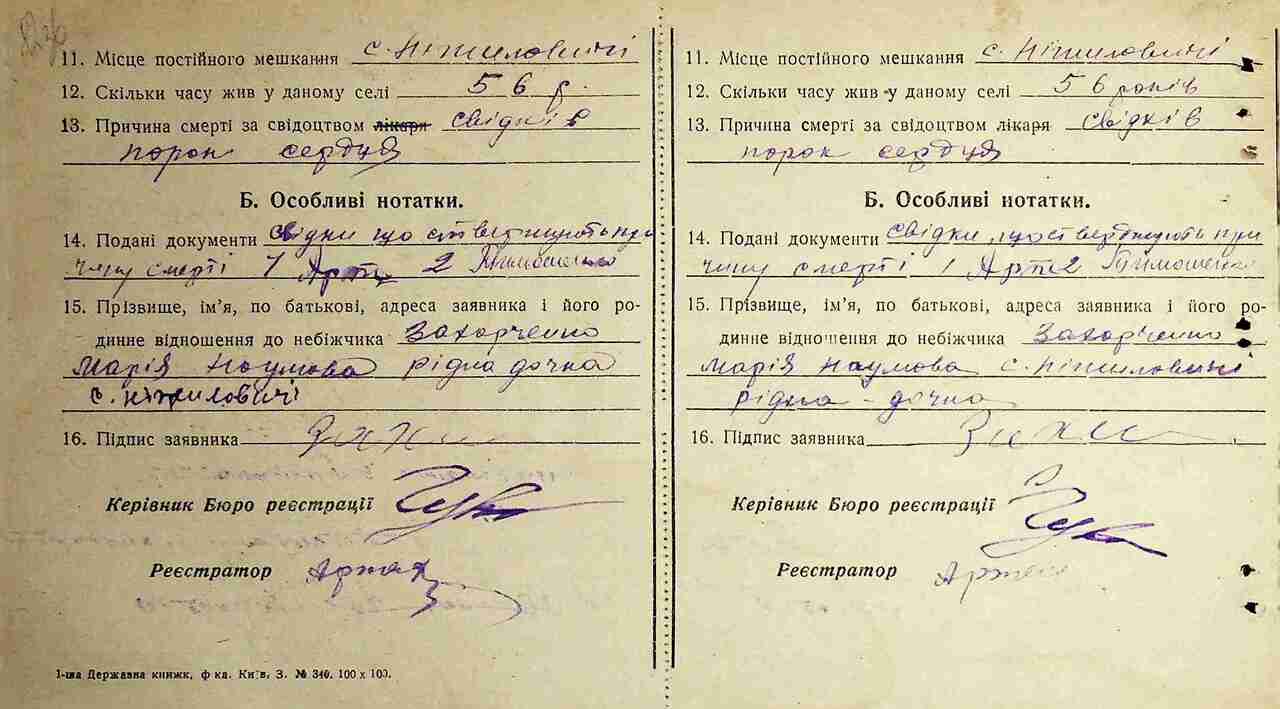 11. Місце постійного мешкання с. Ніжиловичі
12. Скільки часу жив у даному селі 56 р.
13. Причина смерті за свідоцтвом лікаря свідків
порок сердця
Б. Особливі нотатки.
14. Подані документи свідки що стверджують при
чину смерті 1 2 Тимошенко
15. Прізвище, ім’я, по батькові, адреса заявника і його ро-
динне відношення до небіжчика Захарченко
Марія Наумова рідна дочка
с. Ніжиловичі
16. Підпис заявника
Керівник Бюро реєстрації
Реєстратор
1-ша Державна книжк. ф-ка. Київ, З. № 340. 100 х 100.
11. Місце постійного мешкання с. Ніжиловичі
12. Скільки часу жив у даному селі 56 років
13. Причина смерті за свідоцтвом лікаря свідків
порок сердця
Б. Особливі нотатки.
14. Подані документи свідки що стверджують при
чину смерті 1 2 Тимошенко
15. Прізвище, ім’я, по батькові, адреса заявника і його ро-
динне відношення до небіжчика Захарченко
Марія Наумова с. Ніжиловичі
рідна - дочка
16. Підпис заявника
Керівник Бюро реєстрації
Реєстратор